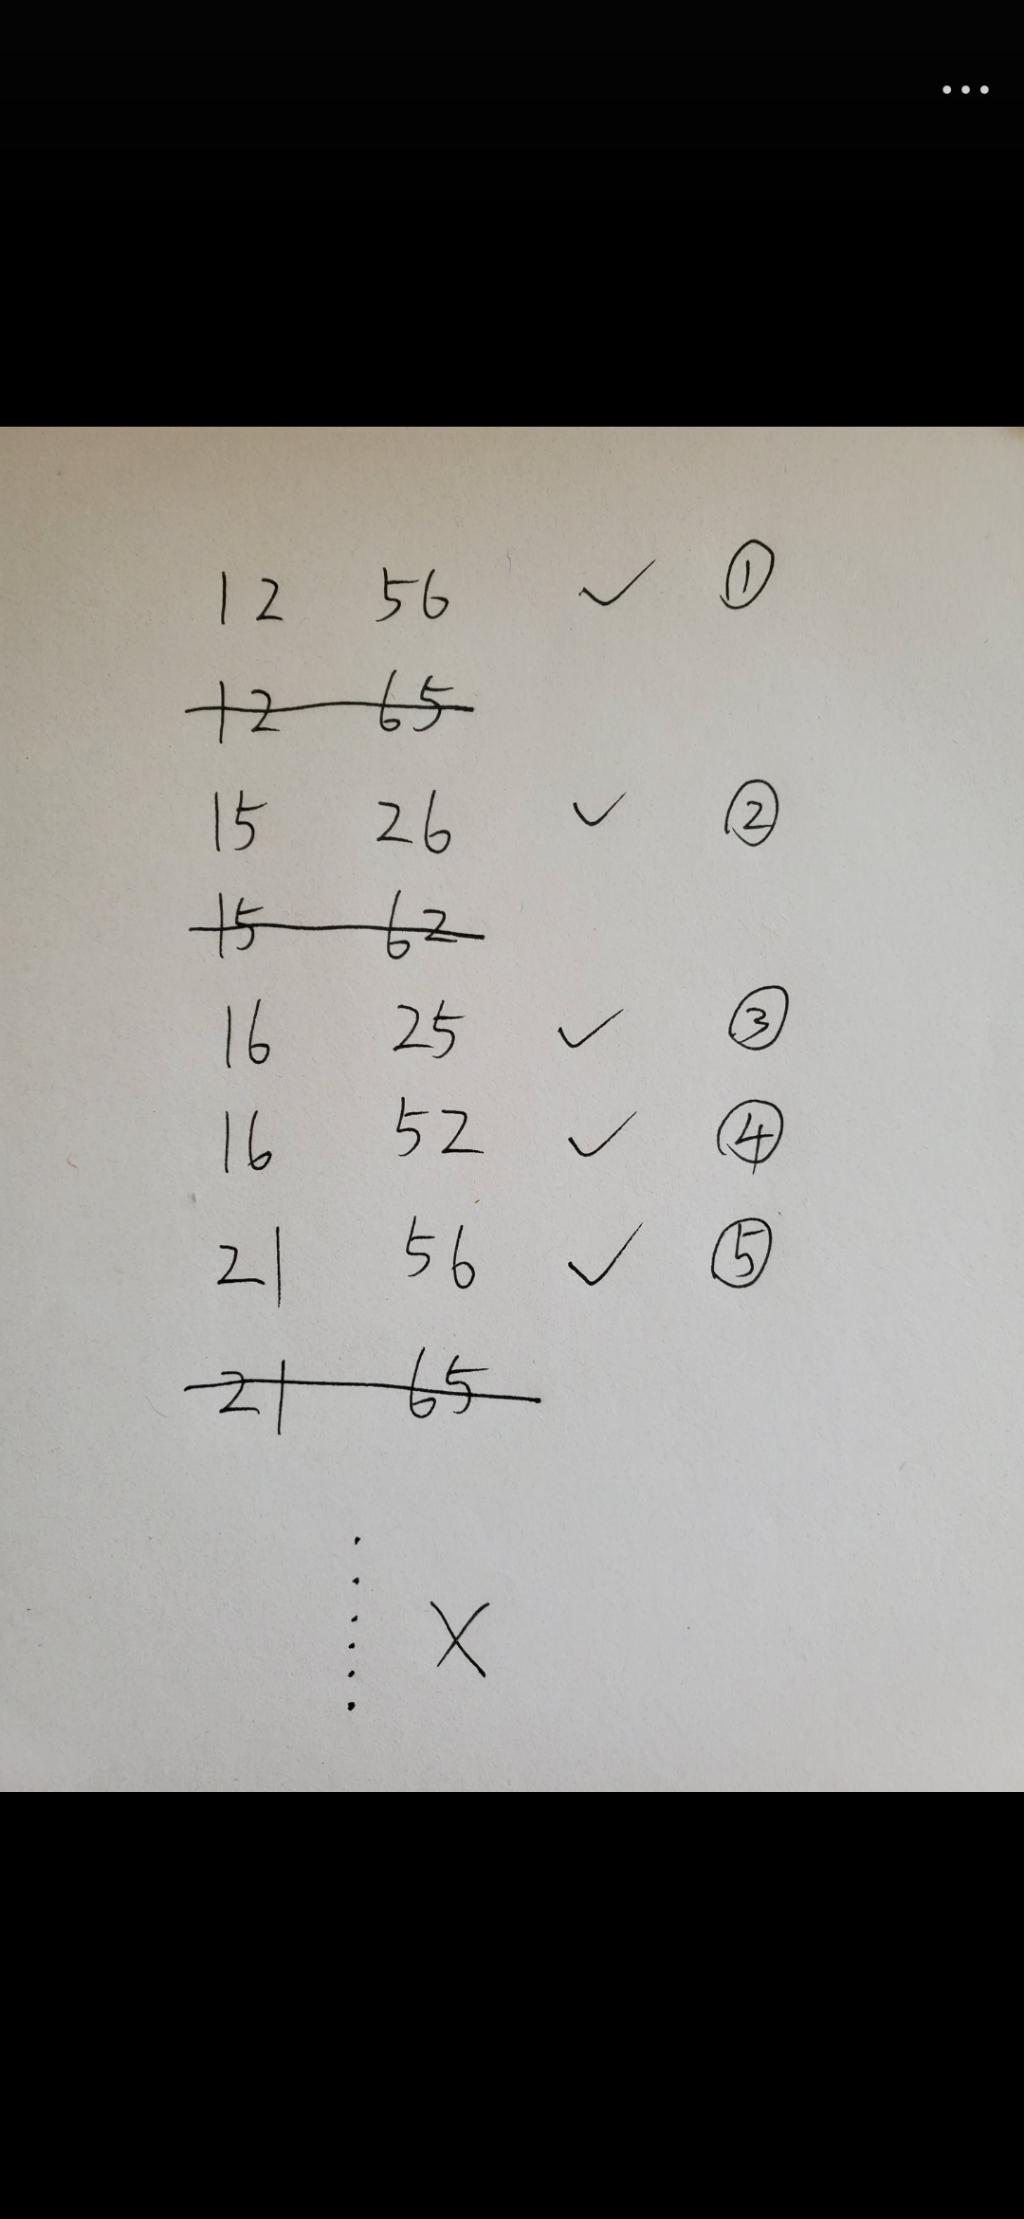 12 56 ✓ ①
12 65
15 26 ✓ ②
15 62
16 25 ✓ ③
16 52 ✓ ④
21 56 ✓ ⑤
21 65
⋮ X